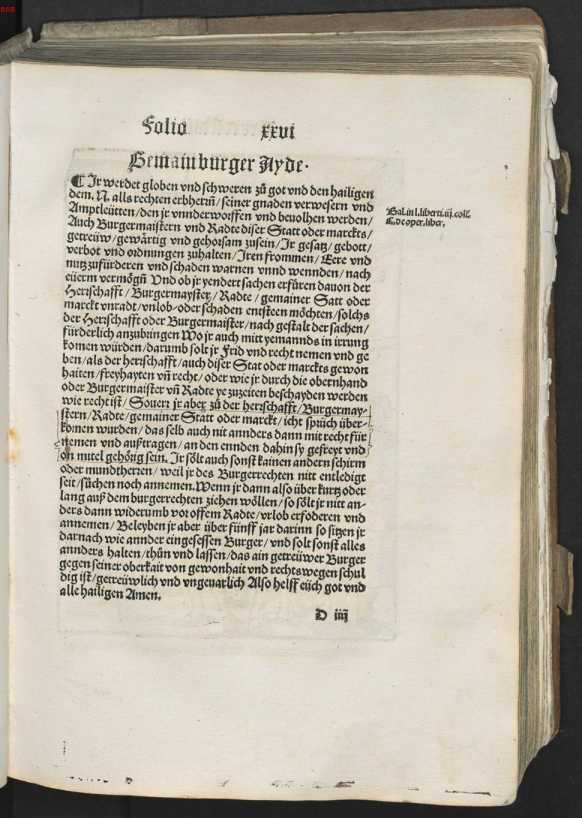 Folio xxvi
Gemainburger Ayde.
¶ Ir werdet globen vnd schweren zů got vnd den hailigen
dem. N. alls rechten erbherrñ / seiner gnaden verwesern vnd
Amptleütten / den jr vnnderworffen vnd beuolhen werden /
Auch Burgermaistern vnd Radte diser Statt oder marckts /
getreüw / gewärtig vnd gehorsam zusein / Jr gesatz / gebott /
verbot vnd ordnungen zuhalten / Iren frommen / Eere vnd
nutz zufürderen vnd schaden warnen vnnd wennden / nach
eüerm vermögñ Vnd ob jr yendert sachen erfüren dauon der
Herrschafft / Burgermayster / Radte / gemainer Satt oder
marckt vnradt / vnlob oder schaden ensteen möchten / solchs
der Herrschafft oder Burgermaister / nach gestalt der sachen /
fürderlich anzubringen Wo jr auch mitt yemannds in irrung
komen würden / darumb solt jr Frid vnd recht nemen vnd ge
ben / als der herrschafft / auch diser Stat oder marckts gewon
haiten / freyhayten vñ recht / oder wie jr durch die obernhand
oder Burgermaister vñ Radte ye zuzeiten beschayden werden
wie recht ist / Souerr jr aber zů der herrschafft / Burgermay-
stern / Radte / gemainer Statt oder marckt / icht sprüch über-
komen wurden / das selb auch nit annders dann mit recht für
nemen vnd aufstragen / an den ennden dahin sy gefreyt vnd
on mitel gehörig sein. Ir sölt auch sonst kainen andern schirm
oder mundtherren / weil jr des Burgerrechten nitt entledigt
seit / sůchen noch annemen. Wenn jr dann also über kurtz oder
lang auß dem burgerrechten ziehen wöllen / so sölt jr nitt an-
ders dann widerumb vor offem Radte / vrlob erfoderen vnd
annemen / Beleyben jr aber über fünff jar darinn so sitzen jr
darnach wie annder eingesessen Burger / vnd solt sonst alles
annders halten / thůn vnd lassen / das ain getreüwer Burger
gegen seiner oberkait von gewonhait vnd rechtswegen schul
dig ist / getreüwlich vnd vngeuarlich Also helff eüch got vnd
alle hailigen Amen.
Bal. in l. liberti. iij. coll.
C. de oper. liber.
D iiij